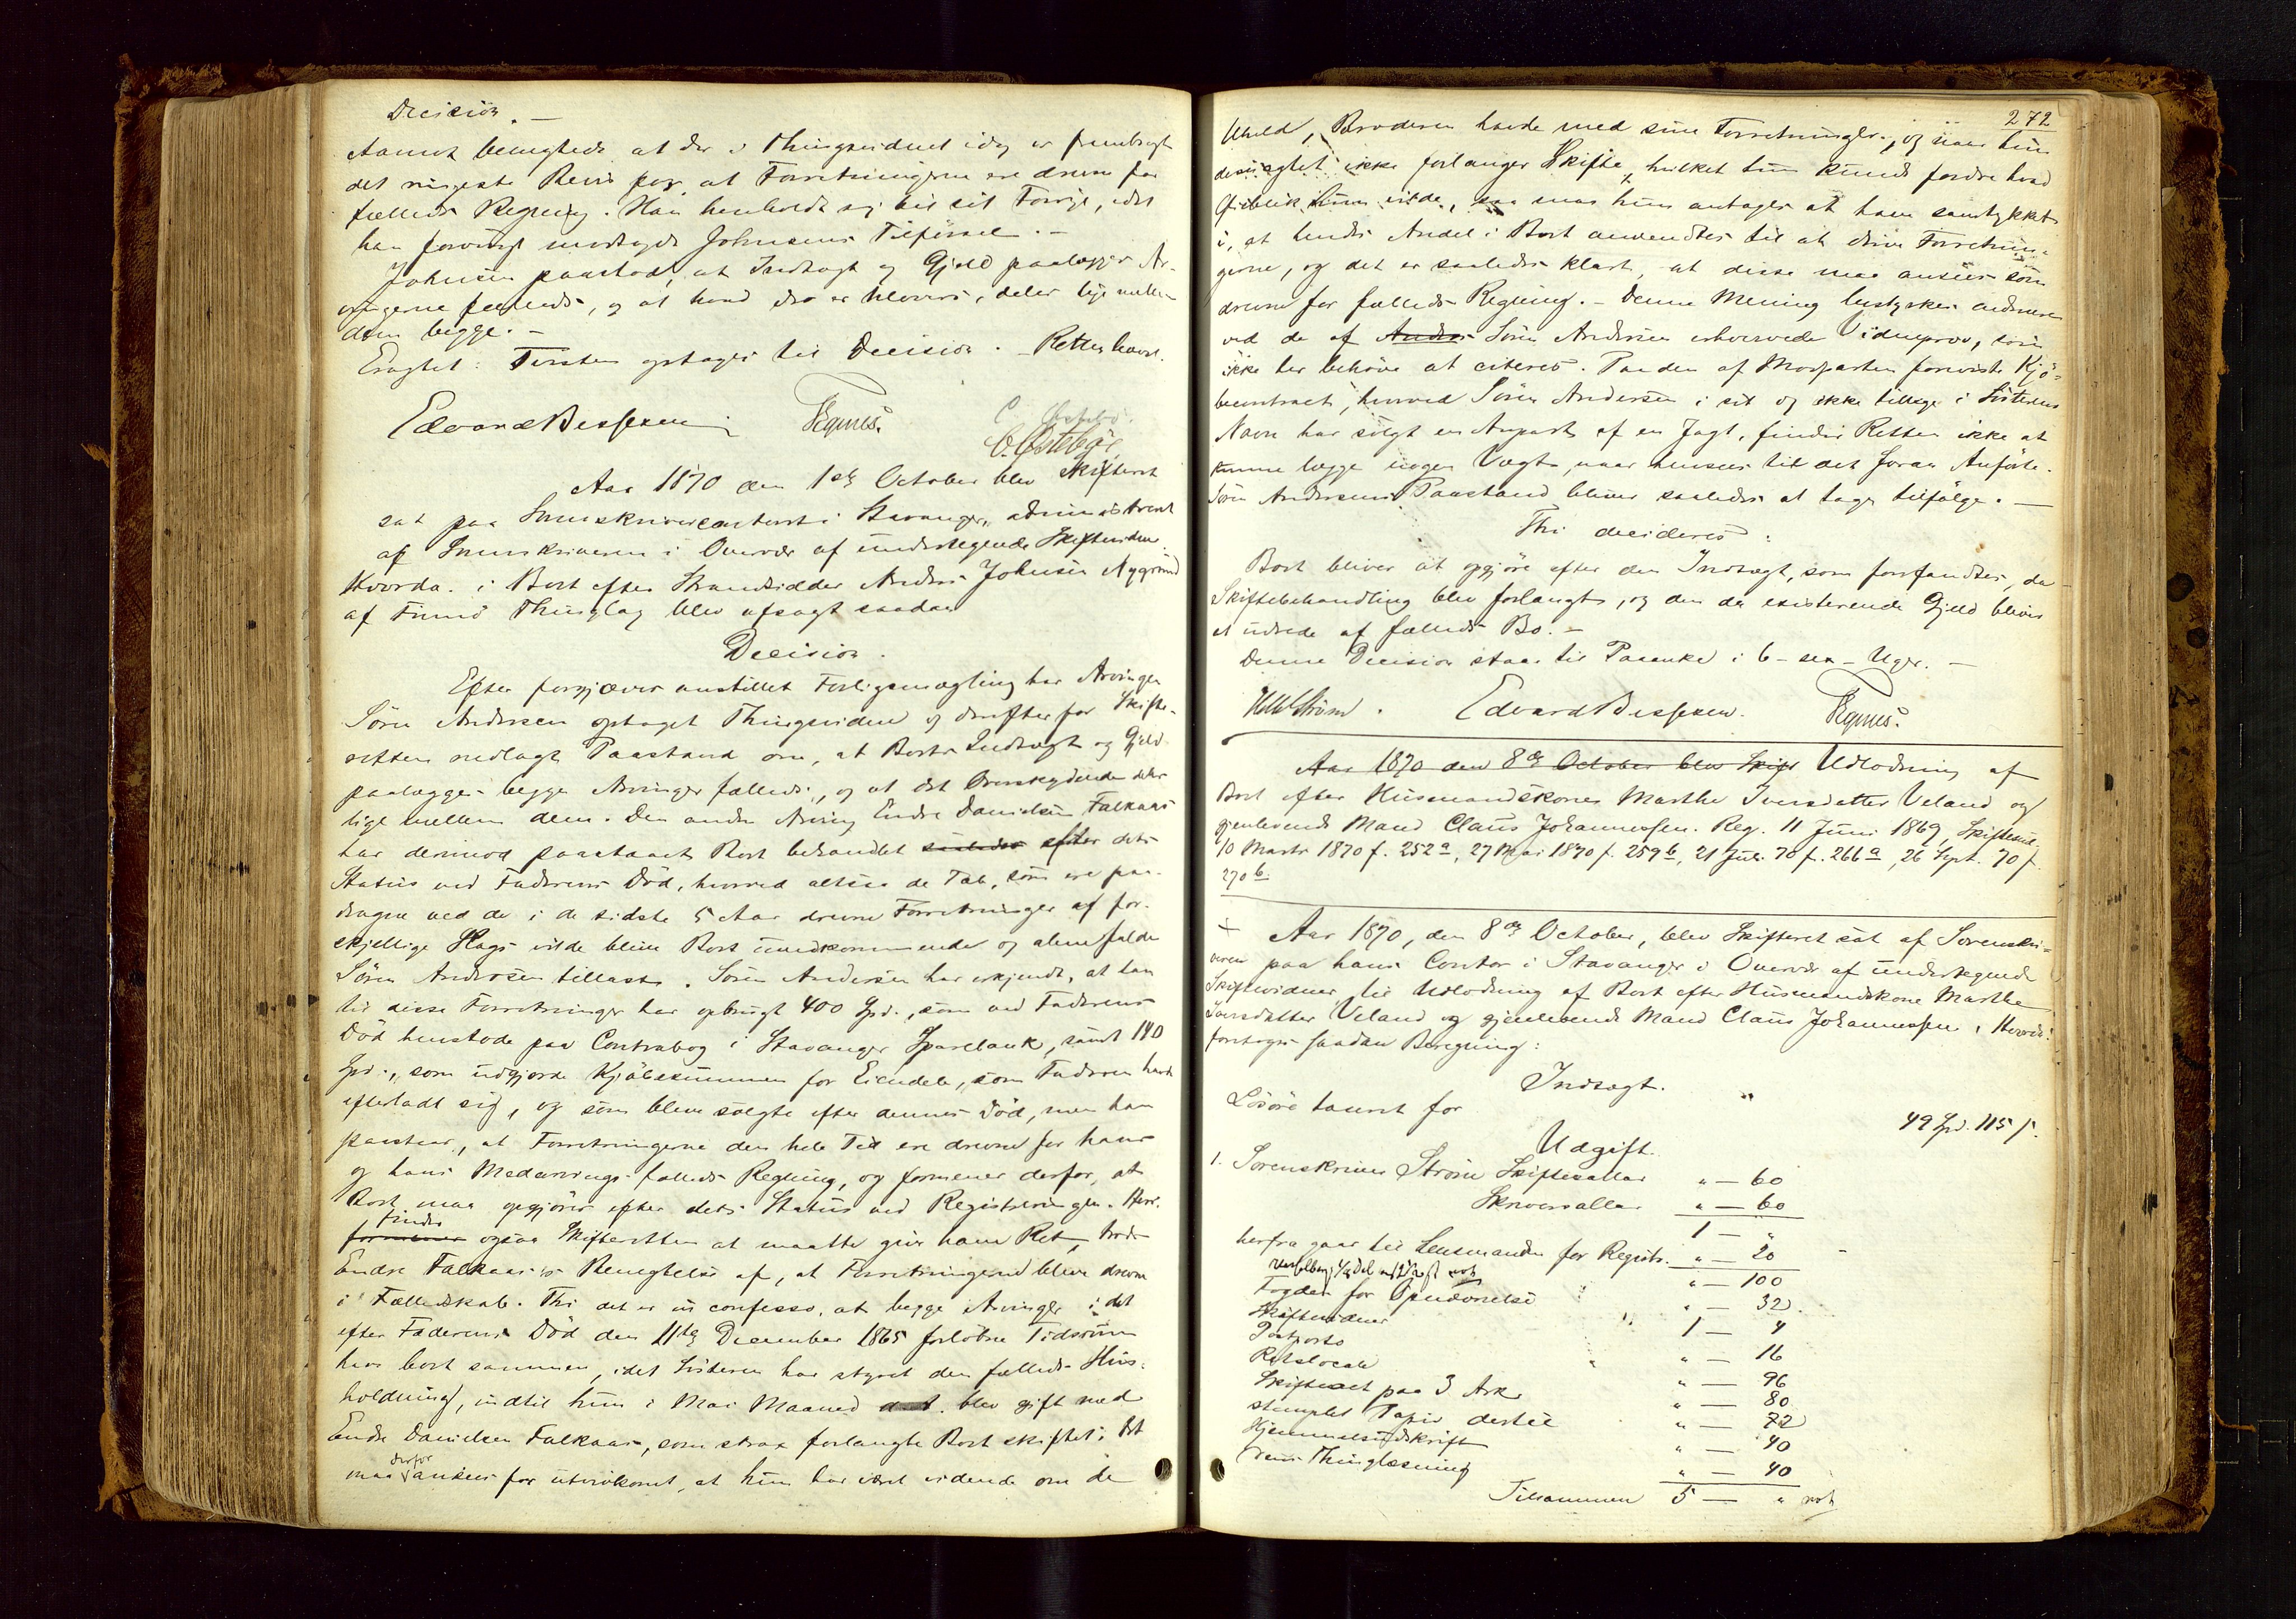 Decision. —
Aamot benegtede at der i Thingsvidnet idag er frembragt
det ringeste Bevis for, at Forretningerne ere drevne for
fælleds Regning. Han henholdt sig til sit Forrige, idet
han forøvrigt modsagde Johnsens Tilførsel. —
Johnsen paastod, at Indtægt og Gjæld paalægges Ar-
vingerne fælleds, og at hvad der er tilovers, deles lige mellem
dem begge. —
Eragtet: Tvisten optages til Decision. — Retten hævet.
Edvard Bessesen Egenes. C. Østebø
C. Østebø,
Aar 1870 den 1ste October blev Skifteret
sat paa Sorenskrivercontoret i Stavanger, administreret
af Sorenskriveren i Overvær af undertegnede Skiftevidner.
Hvorda. i Boet efter Strandsidder Anders Johnsen Nygrund
af Finnø Thinglag blev afsagt saadan
Decision.
Efter forgjæves anstillet Forligsmægling har Arvingen
Søren Andersen optaget Thingsvidne og derefter for Skifte-
retten nedlagt Paastand om, at Boets Indtægt og Gjeld
paalægges begge Arvinger fælleds, og at det Overskydende deles
lige mellem dem. Den anden Arving Endre Danielsen Falkaas
har derimod paastaaet Boet behandlet saaledes efter dets
Status ved Faderens Død, hvorved altsaa de Tab, som ere paa-
dragne ved de i de sidste 5 Aar drevne Forretninger af for-
skjellige Slags vilde blive Boet uvedkommende og alene falde
Søren Andersen tillast. Søren Andersen har erkjendt, at han
til disse Forretninger har opbrugt 400 Spd., som ved Faderens
Død henstode paa Contrabog i Stavanger Sparebank, samt 140
Spd., som udgjorde Kjøbesummen for Eiendele, som Faderen havde
efterladt sig, og som bleve solgte efter dennes Død, men han
paastaar, at Forretningerne den hele Tid ere drevne for hans
og hans Medarvings fælleds Regning, og formener derfor, at
Boet maa opgjøres efter dets Status ved Registreringen. Heri
formener finder ogsaa Skifteretten at maatte give ham Ret, trods
Endre Falkaas's Benegtelse af, at Forretningerne bleve drevne
i Fælledskab. Thi det er in confesso, at begge Arvinger i det
efter Faderens Død den 11te December 1865 forløbne Tidsrum
have boet sammen, idet Søsteren har styret den fælleds Hus-
holdning, indtil hun i Mai Maaned blev gift med
Endre Danielsen Falkaas, som strax forlangte Boet skiftet; det
maa derfor ansees for utvivlsomt, at hun har været vidende om de
272
Uheld, Broderen havde med sine Forretninger, og naar hun
desuagtet ikke forlanger Skifte, hvilket hun kunde fordre hvad
Øieblik hun vilde, saa maa hun antages at have samtykket
i, at hendes Andel i Boet anvendtes til at drive Forretnin-
gerne, og det er saaledes klart, at disse maa ansees som
drevne for fælleds Regning. — Denne Mening bestyrkes endmere
ved de af Anders Søren Andersen erhvervede Vidneprov, som
ikke her behøve at citeres. Paa den af Modparten foreviste Kjø-
becontract, hvorved Søren Andersen i sit og ikke tillige i Søsterens
Navn har solgt en Anpart af en Jagt, finder Retten ikke at
kunne lægge nogen Vægt, naar hensees til det foran Anførte.
Søren Andersens Paastand bliver saaledes at tage tilfølge. —
Thi decideres:
Boet bliver at opgjøre efter den Indtægt, som forefandtes, da
Skiftebehandling blev forlangt, og den da existerende Gjeld bliver
at udrede af fælleds Bo. —
Denne Decision staar til Paaanke i 6 - sex - Uger. —
Strøm. Edvard Bessesen. Egenes.
Aar 1870 den 8de October blev Skift Udlodning af
Boet efter Husmandskonen Marthe Iversdatter Veland og
gjenlevende Mand Claus Johannessen. Reg. 11 Juni 1869, Skiftesaml.
10 Marts 1870 f. 252a, 27 Mai 1870 f. 259b, 21 Juli 70 f. 266a, 26 Sept. 70 f.
270b.
Aar 1870, den 8de October, blev Skifteret sat af Sorenskri-
veren paa hans Contor i Stavanger i Overvær af undertegnede
Skiftevidner til Udlodning af Boet efter Husmandskone Marthe
Iversdatter Veland og gjenlevende Mand Claus Johannessen. Hvorda.
foretoges saadan Beregning:
Indtægt.
Løsøre taxeret for 49 Spd. 115 s.
Udgift.
1. Sorenskriver Strøm Skiftesallar " — 60
Skriversallar " — 60
1 — "
herfra gaar til Lensmanden for Registr. " — 20
" — 100
Fogden for Opudnævnelse " — 32
Skiftevidner 1 — 4
Postporto " — 16
Retslocale " — 96
Skifteact paa 3 Ark " — 80
stemplet Papir dertil " — 72
Hjemmelsudskrift " — 40
dens Thinglæsning " — 40
Tilsammen 5 — "